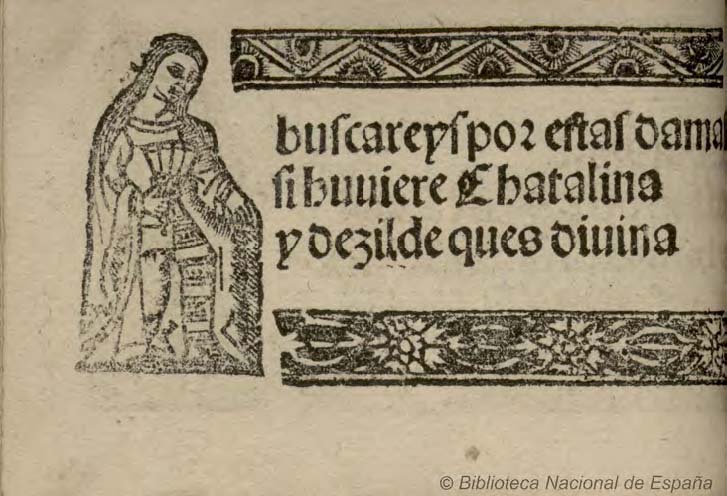 buscareys por estas damas
si huuiere Chatalina
y dezilde ques diuina
© Biblioteca Nacional de España